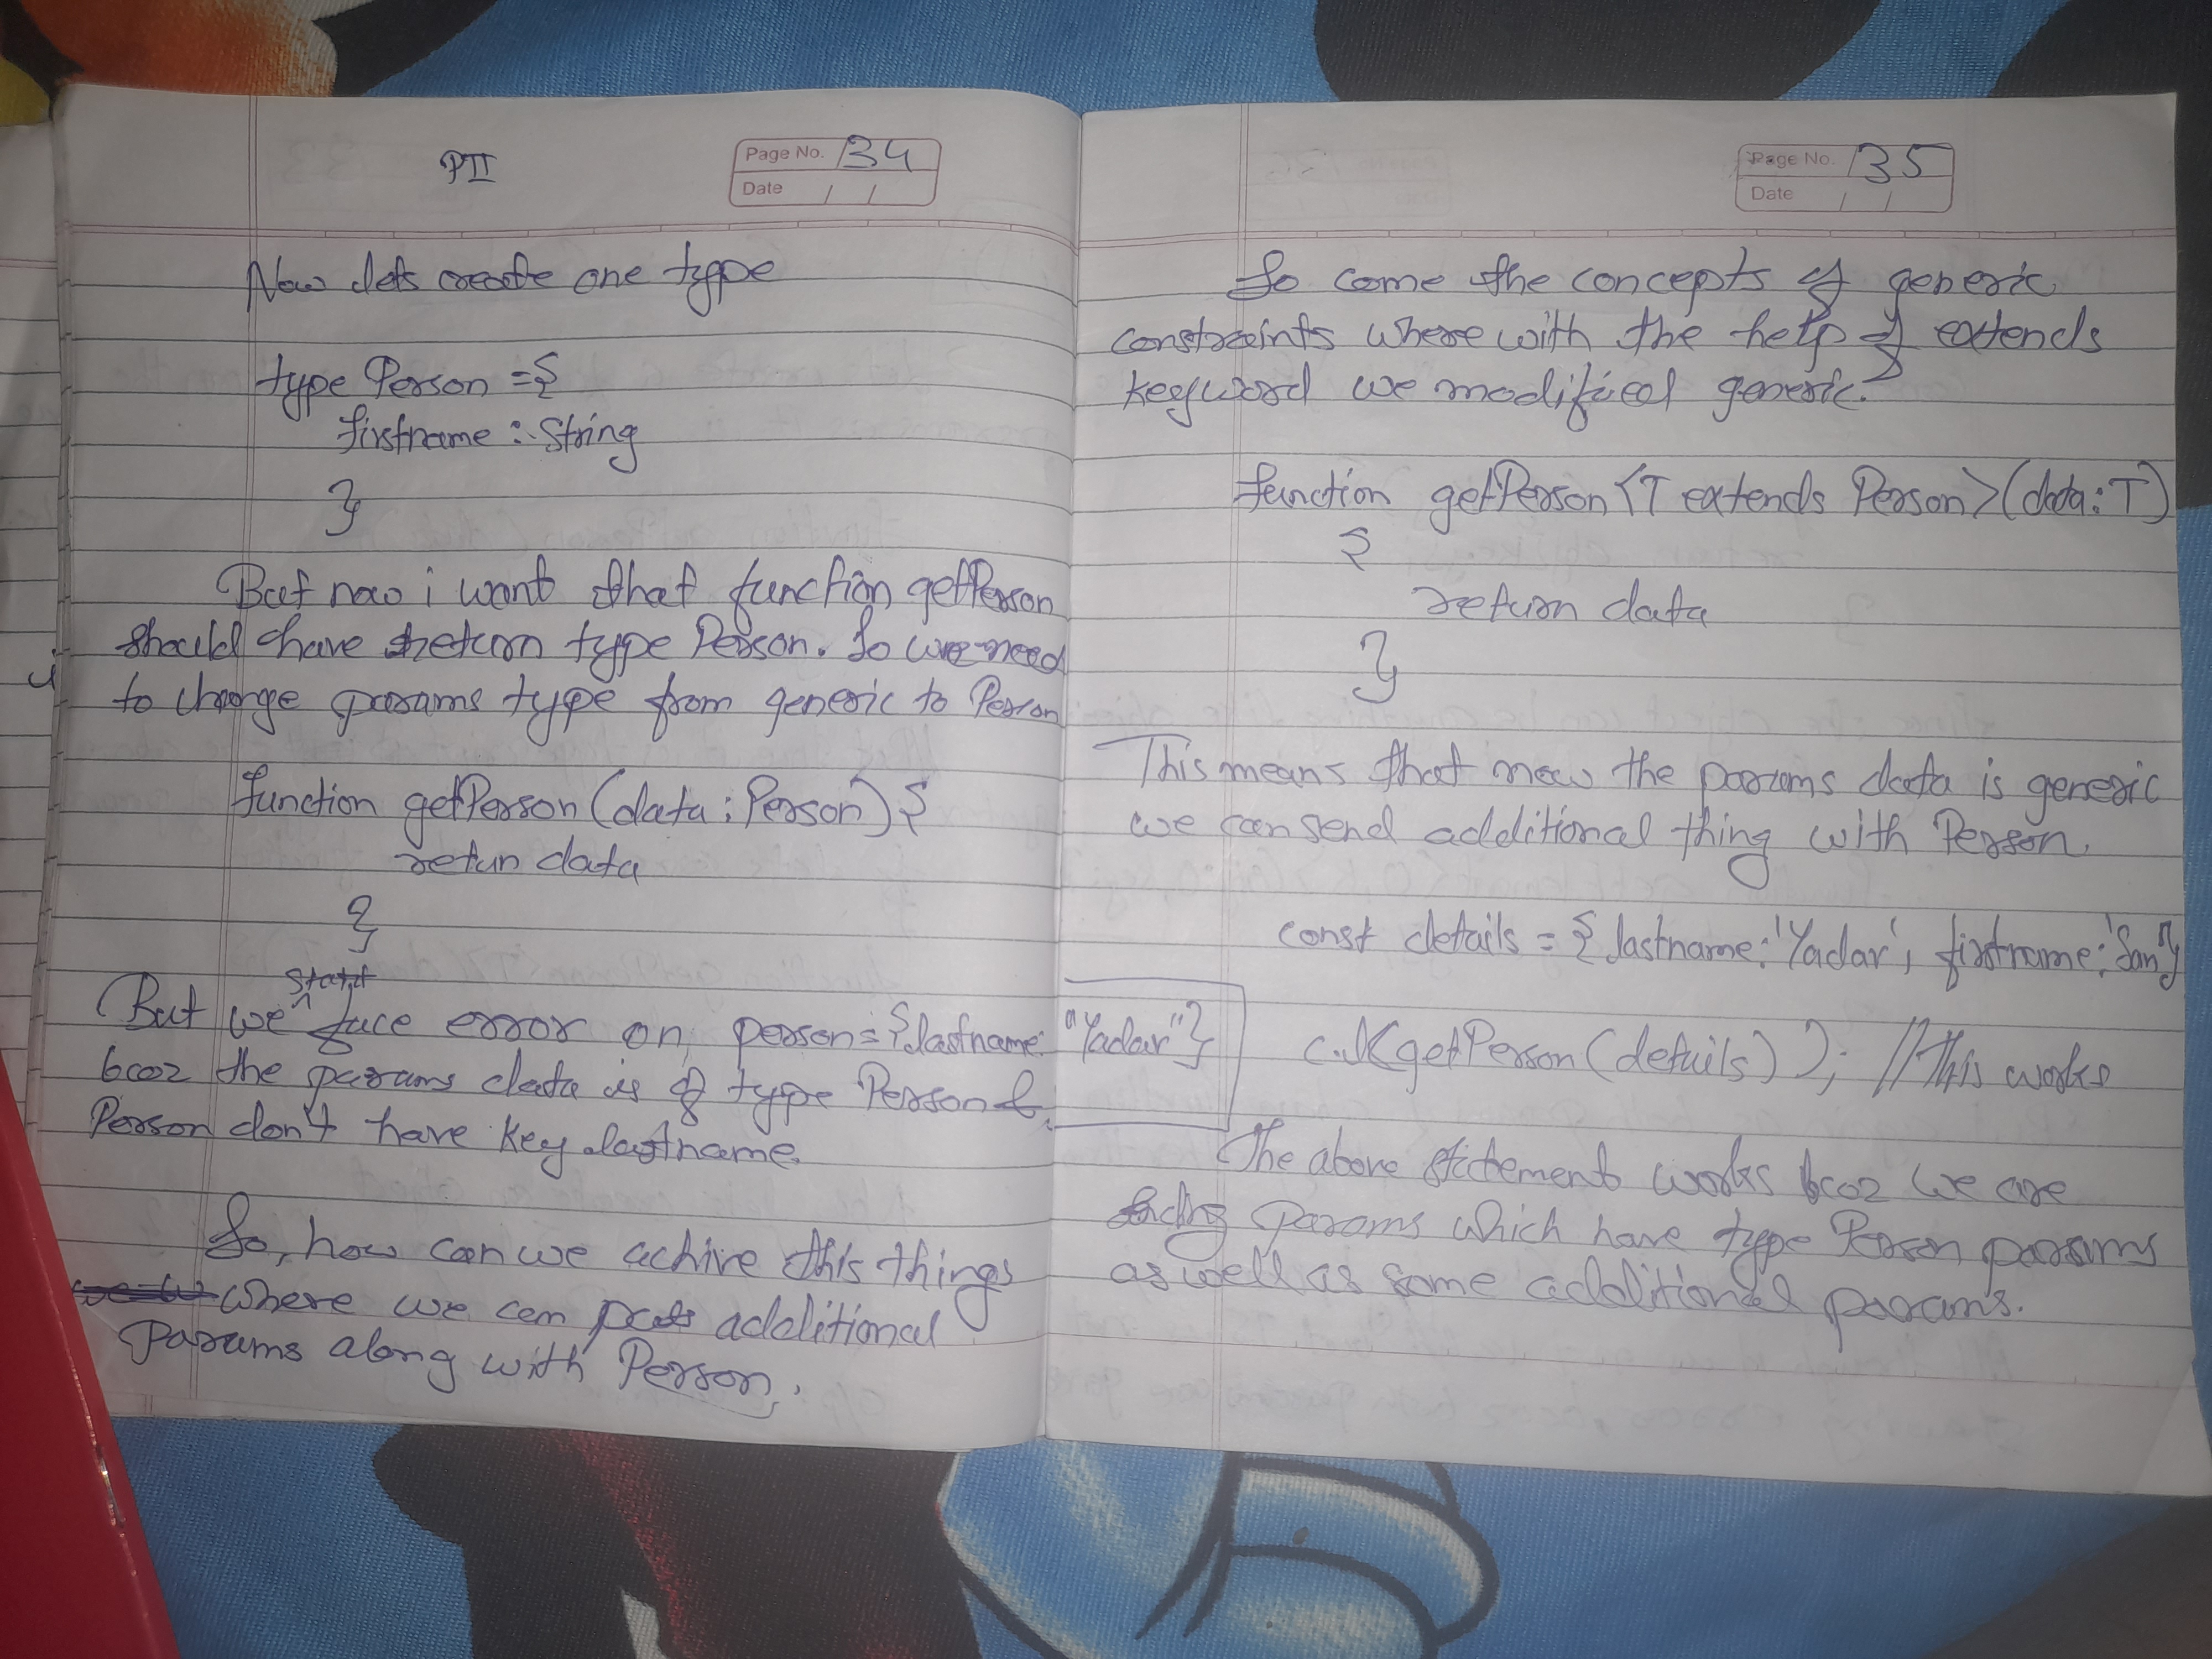 PTI
Page No. 134
Date / /
Now lets create one type
type Person = {
firstname : String
}
But now i want that function getPerson
should have return type Person. So we need
to change params type from generic to Person
function getPerson (data : Person) {
return data
}
But we start face error on person = { lastname: "Yadav" }
bcoz the params data is of type Person &
Person don't have key lastname.
So, how can we achive this things
where we can pass additional
Params along with Person.
Page No. 135
Date / /
So come the concepts of generic
constraints where with the help of extends
keyword we modified generic.
function getPerson <T extends Person> (data : T)
{
return data
}
This means that now the params data is generic
we can send additional thing with Person.
const details = { lastname: 'Yadav', firstname: 'Son' }
c.l(getPerson (details)); // this works
The above statement works bcoz we are
sending params which have type Person params
as well as some additional params.